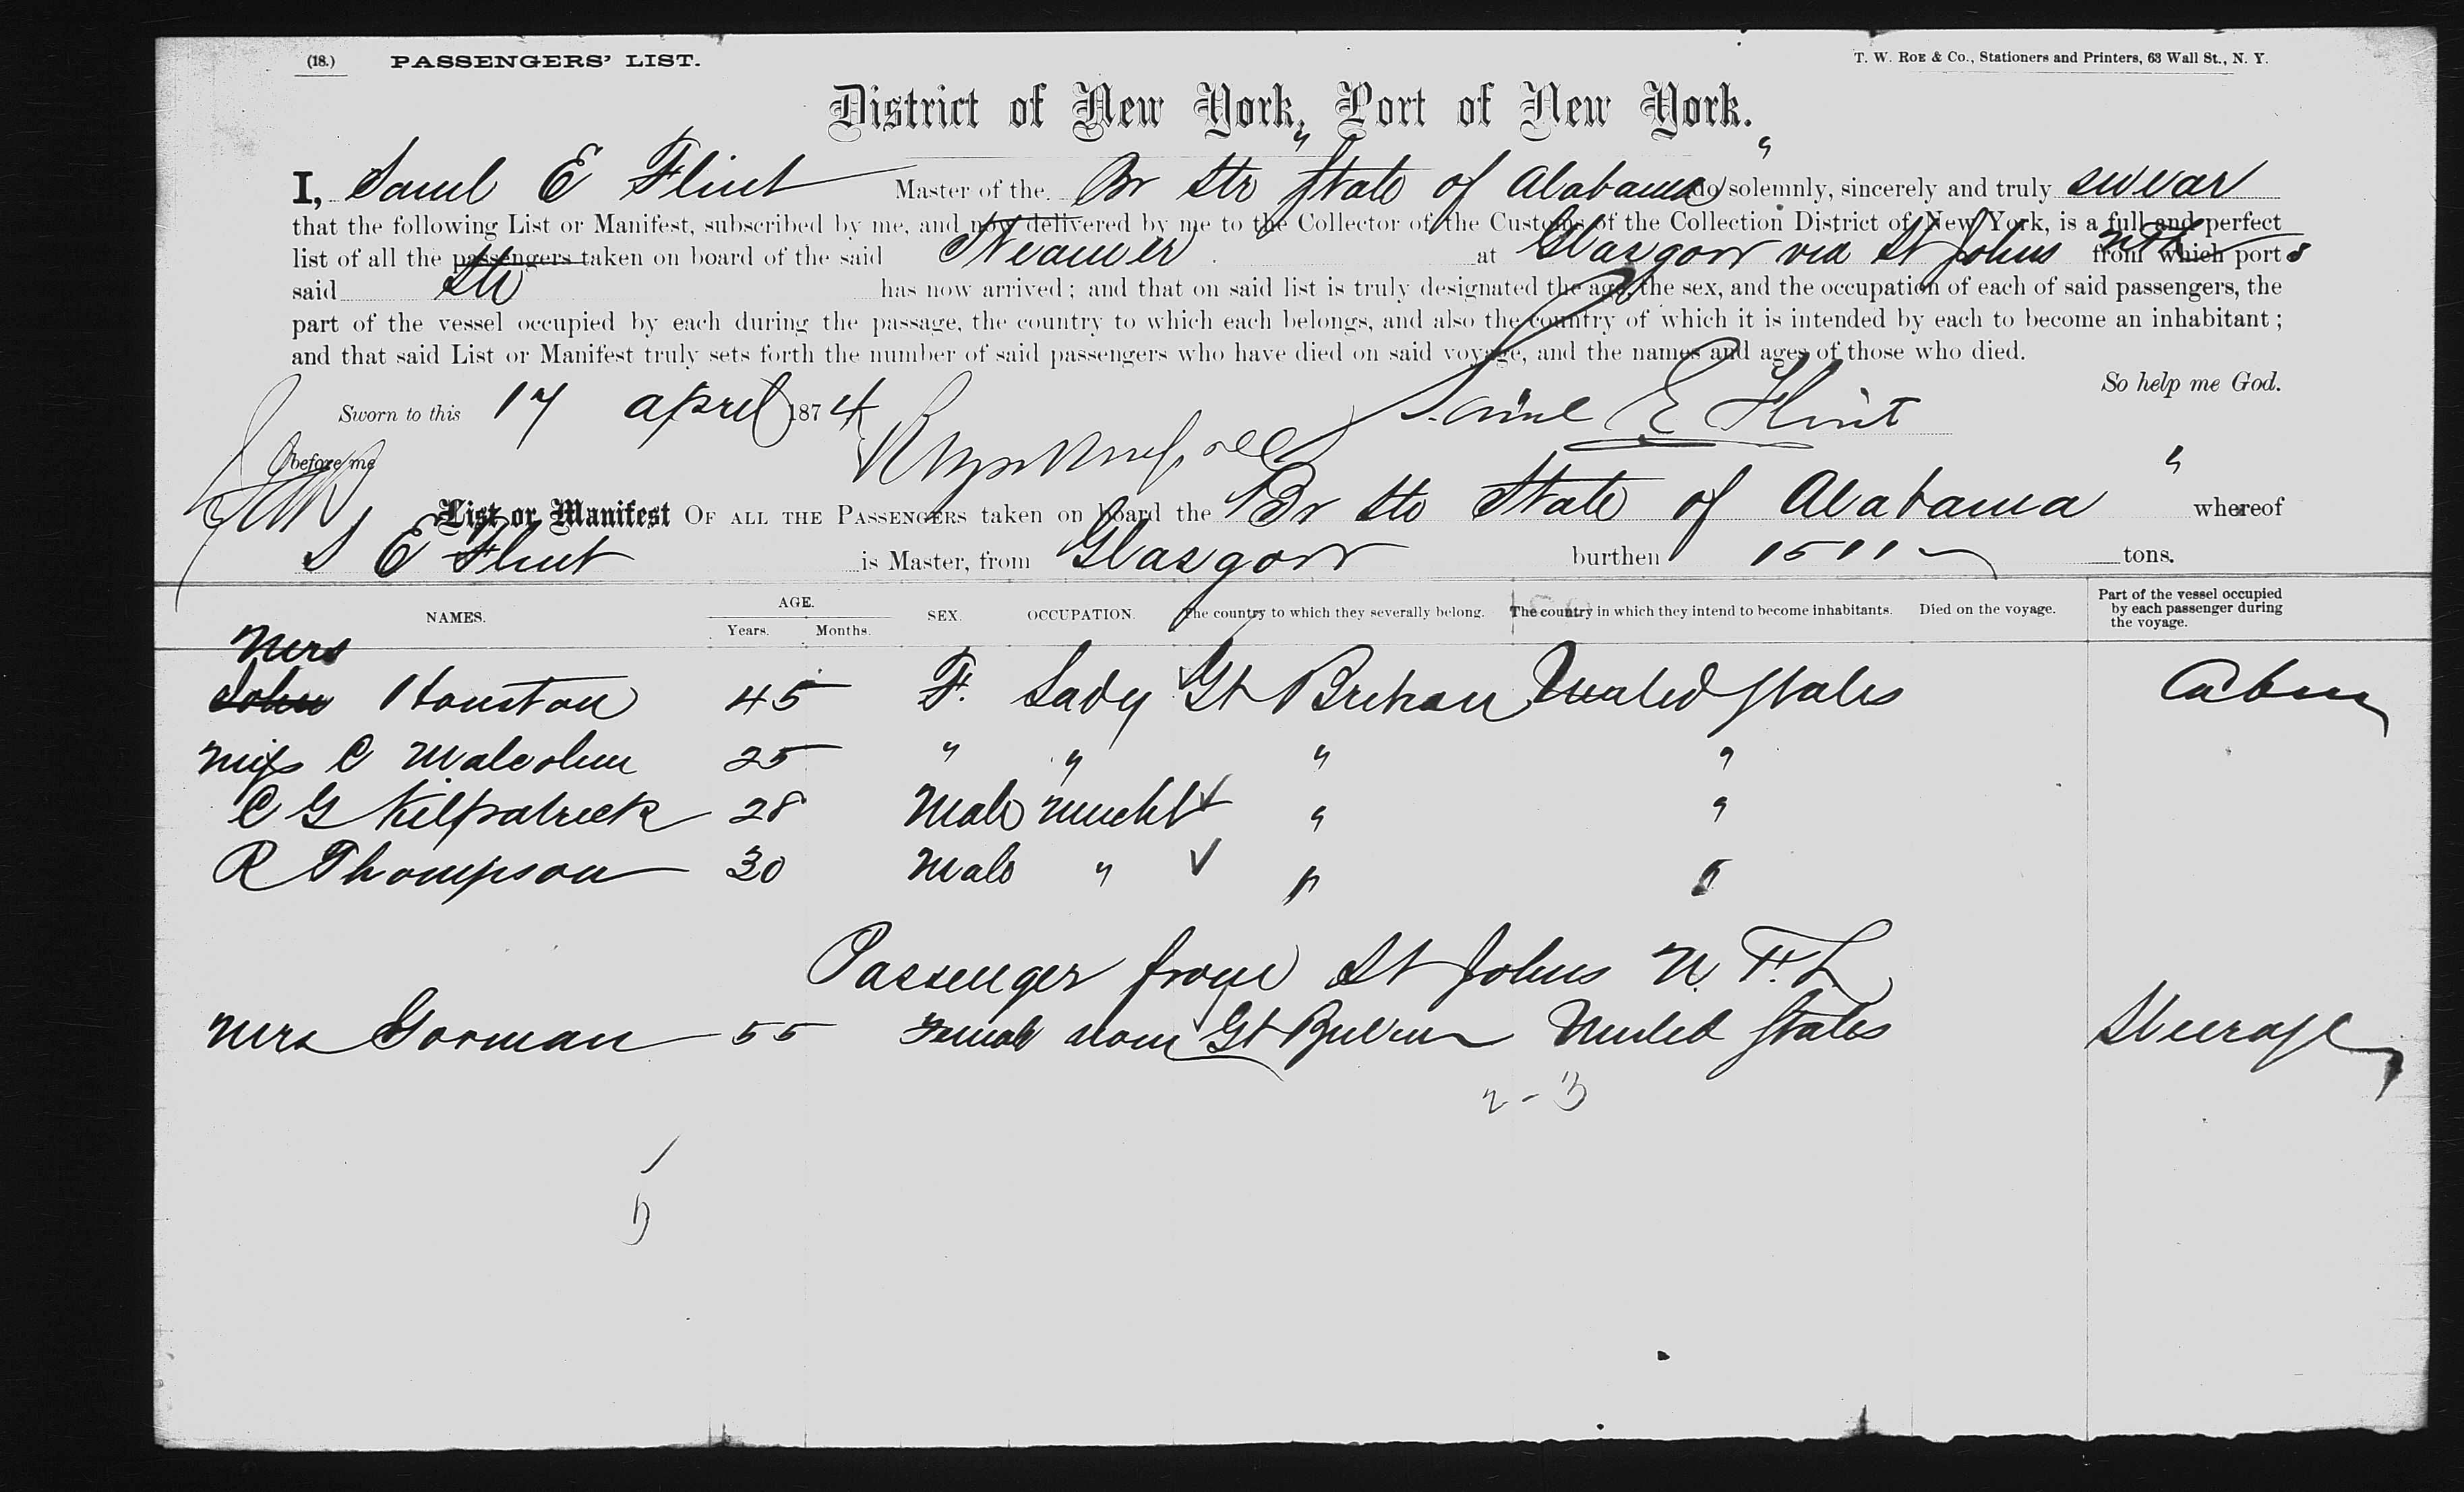 (18.) PASSENGERS' LIST. T. W. ROE & Co., Stationers and Printers, 63 Wall St., N. Y.
District of New York, Port of New York.
I, Saml E Flint Master of the Br Str "State of Alabama" do solemnly, sincerely and truly swear
that the following List or Manifest, subscribed by me, and now delivered by me to the Collector of the Customs of the Collection District of New York, is a full and perfect
list of all the passengers taken on board of the said Steamer at Glasgow via St Johns Nfd from which port s
said Str has now arrived; and that on said list is truly designated the age, the sex, and the occupation of each of said passengers, the
part of the vessel occupied by each during the passage, the country to which each belongs, and also the country of which it is intended by each to become an inhabitant;
and that said List or Manifest truly sets forth the number of said passengers who have died on said voyage, and the names and ages of those who died.
So help me God.
Sworn to this 17 April 1874 Saml E Flint
before me
List or Manifest OF ALL THE PASSENGERS taken on board the Br Str State of Alabama " whereof
S E Flint is Master, from Glasgow burthen 1511 tons.
NAMES. AGE. Years. Months. SEX. OCCUPATION. The country to which they severally belong. The country in which they intend to become inhabitants. Died on the voyage. Part of the vessel occupied by each passenger during the voyage.
Mrs
John Houston 45 F. Lady Gt Britain United States Cabin
Miss C Malcolm 25 " " " "
C G Kilpatrick 28 Male Mercht " "
R Thompson 30 Male " " "
Passenger from St Johns N. F. L
Mrs Gorman 55 Female none Gt Britain United States Steerage
2-3